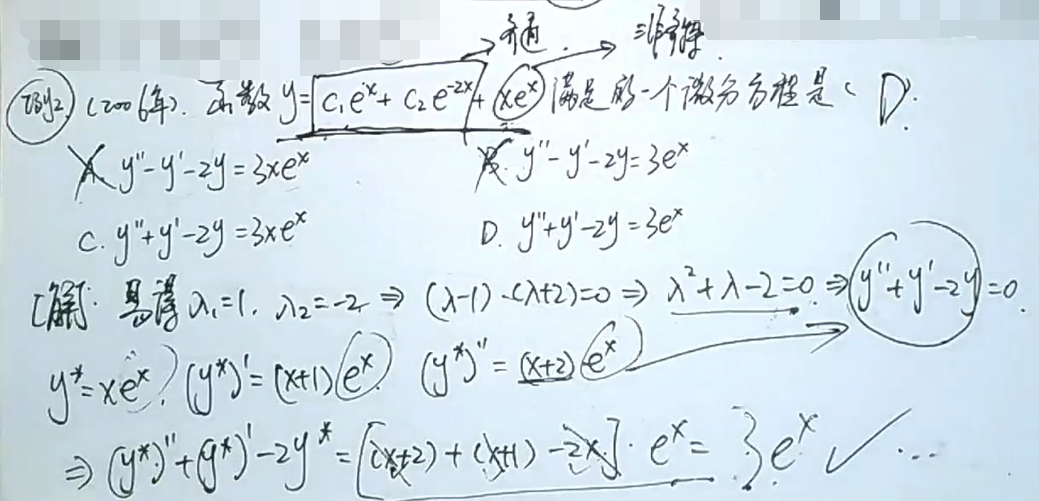 齐通. 非齐特.
例2. (2006年). 函数 y = C₁eˣ + C₂e⁻²ˣ + xeˣ 满足的一个微分方程是( D.
A. y''-y'-2y=3xeˣ B. y''-y'-2y=3eˣ
C. y''+y'-2y=3xeˣ D. y''+y'-2y=3eˣ
[解]. 易得 λ₁=1. λ₂=-2 ⇒ (λ-1)·(λ+2)=0 ⇒ λ²+λ-2=0. ⇒ y''+y'-2y=0.
y*=xeˣ, (y*)'=(x+1)eˣ (y*)''=(x+2)eˣ
⇒ (y*)''+(y*)'-2y*=[(x+2)+(x+1)-2x]·eˣ=3eˣ ✓ ...